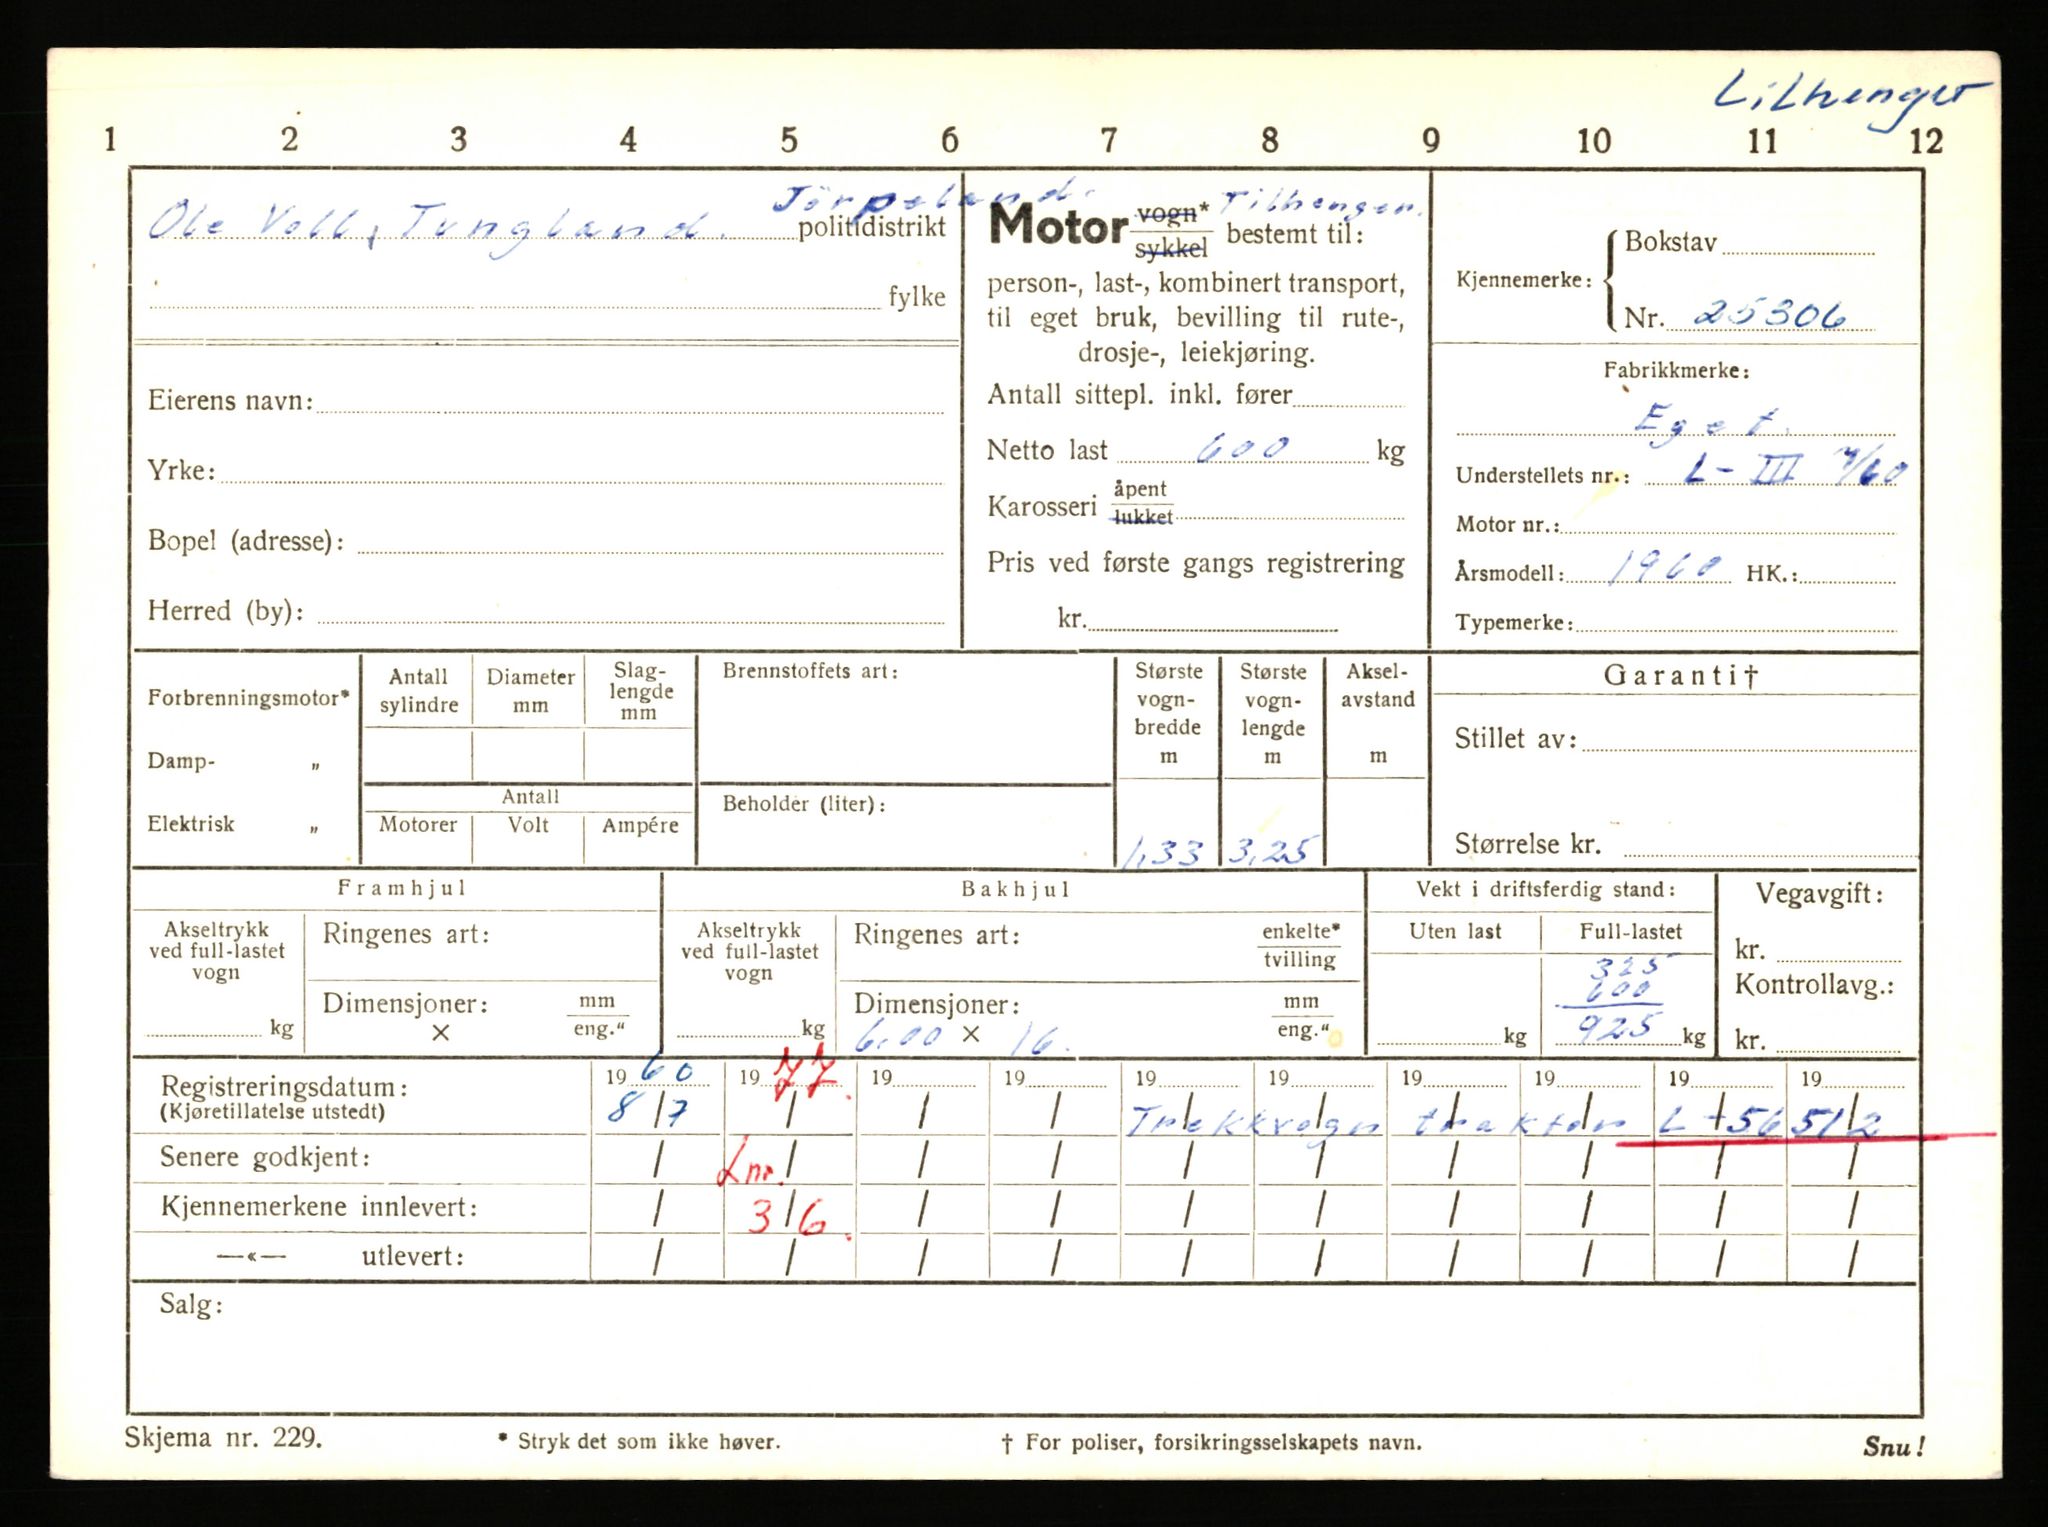 Lilhenger
1 2 3 4 5 6 7 8 9 10 11 12
Ole Voll, Tungland. Jörpeland. politidistrikt
fylke
Eierens navn:
Yrke:
Bopel (adresse):
Herred (by):
Motor vogn* sykkel bestemt til: Tilhenger.
person-, last-, kombinert transport,
til eget bruk, bevilling til rute-,
drosje-, leiekjøring.
Antall sittepl. inkl. fører
Netto last 600 kg
Karosseri åpent lukket
Pris ved første gangs registrering
kr.
Kjennemerke: Bokstav
Nr. 25306
Fabrikkmerke:
Eget.
Understellets nr.: L - III 4/60
Motor nr.:
Årsmodell: 1960 HK.:
Typemerke:
Forbrenningsmotor*
Damp- „
Elektrisk „
Antall sylindre
Diameter mm
Slag-
lengde
mm
Antall
Motorer Volt Ampére
Brennstoffets art:
Beholder (liter):
Største
vogn-
bredde
m
1,33
Største
vogn-
lengde
m
3,25
Aksel-
avstand
m
Garanti†
Stillet av:
Størrelse kr.
Framhjul
Akseltrykk
ved full-lastet
vogn
kg
Ringenes art:
Dimensjoner: mm
× eng."
Bakhjul
Akseltrykk
ved full-lastet
vogn
kg
Ringenes art: enkelte*
tvilling
Dimensjoner: mm
6,00 × 16. eng."
Vekt i driftsferdig stand:
Uten last Full-lastet
325
600
kg 925 kg
Vegavgift:
kr.
Kontrollavg.:
kr.
Registreringsdatum: 19 60 19 77. 19 19 19 19 19 19 19 19
(Kjøretillatelse utstedt) 8/7 / / / Trekkvogn traktor L-56512
Senere godkjent: / Lnr. / / / / / / / / /
Kjennemerkene innlevert: / 3/6. / / / / / / / /
—«— utlevert: / / / / / / / / / /
Salg:
Skjema nr. 229. * Stryk det som ikke høver. † For poliser, forsikringsselskapets navn. Snu!